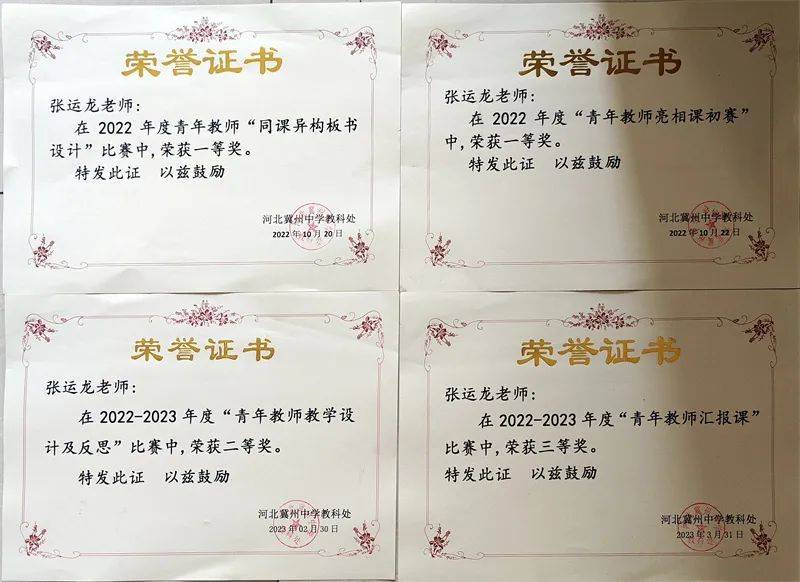 荣誉证书
张运龙老师:
在 2022 年度青年教师“同课异构板书
设计”比赛中,荣获一等奖。
特发此证 以兹鼓励
河北冀州中学教科处
2022 年 10 月 20 日
荣誉证书
张运龙老师:
在 2022 年度“青年教师亮相课初赛”
中,荣获一等奖。
特发此证 以兹鼓励
河北冀州中学教科处
2022 年 10 月 22 日
荣誉证书
张运龙老师:
在 2022-2023 年度“青年教师教学设
计及反思”比赛中,荣获二等奖。
特发此证 以兹鼓励
河北冀州中学教科处
2023 年 02 月 30 日
荣誉证书
张运龙老师:
在 2022-2023 年度“青年教师汇报课”
比赛中,荣获三等奖。
特发此证 以兹鼓励
河北冀州中学教科处
2023 年 3 月 31 日